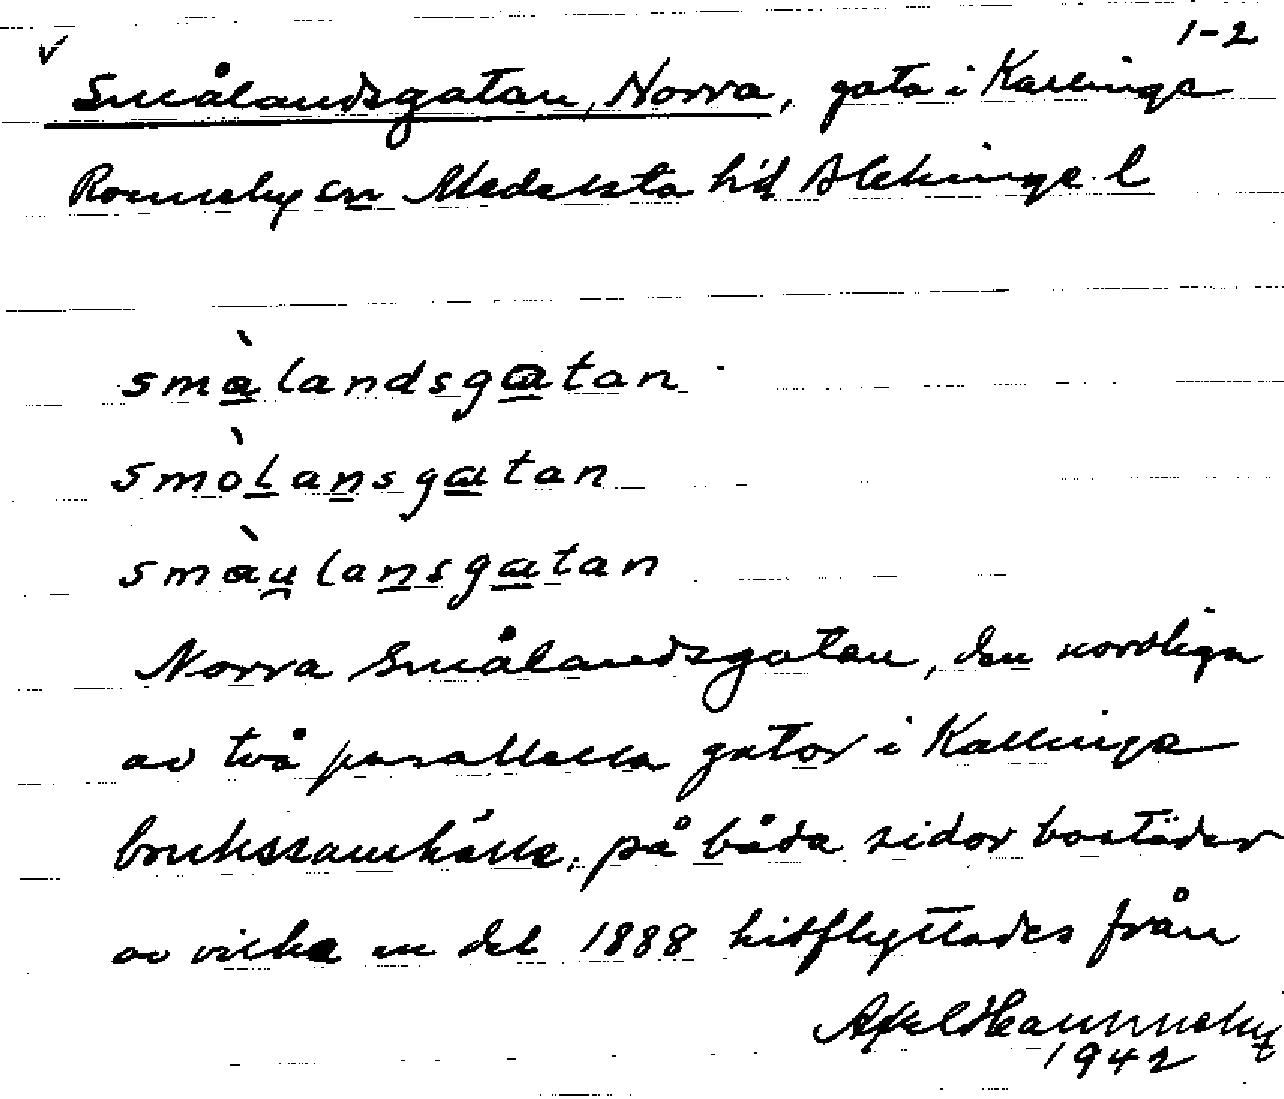 1-2
Smålandsgatan, Norra, gata i Kallinge
Ronneby sn Medelsta hd Blekinge l
smàlandsgatan
smòlansgatan
smàulansgatan
Norra Smålandsgatan, den nordliga
av två parallella gator i Kallinge
brukssamhälle, på båda sidor bostäder
av vilka en del 1888 hitflyttades från
Axel
1942